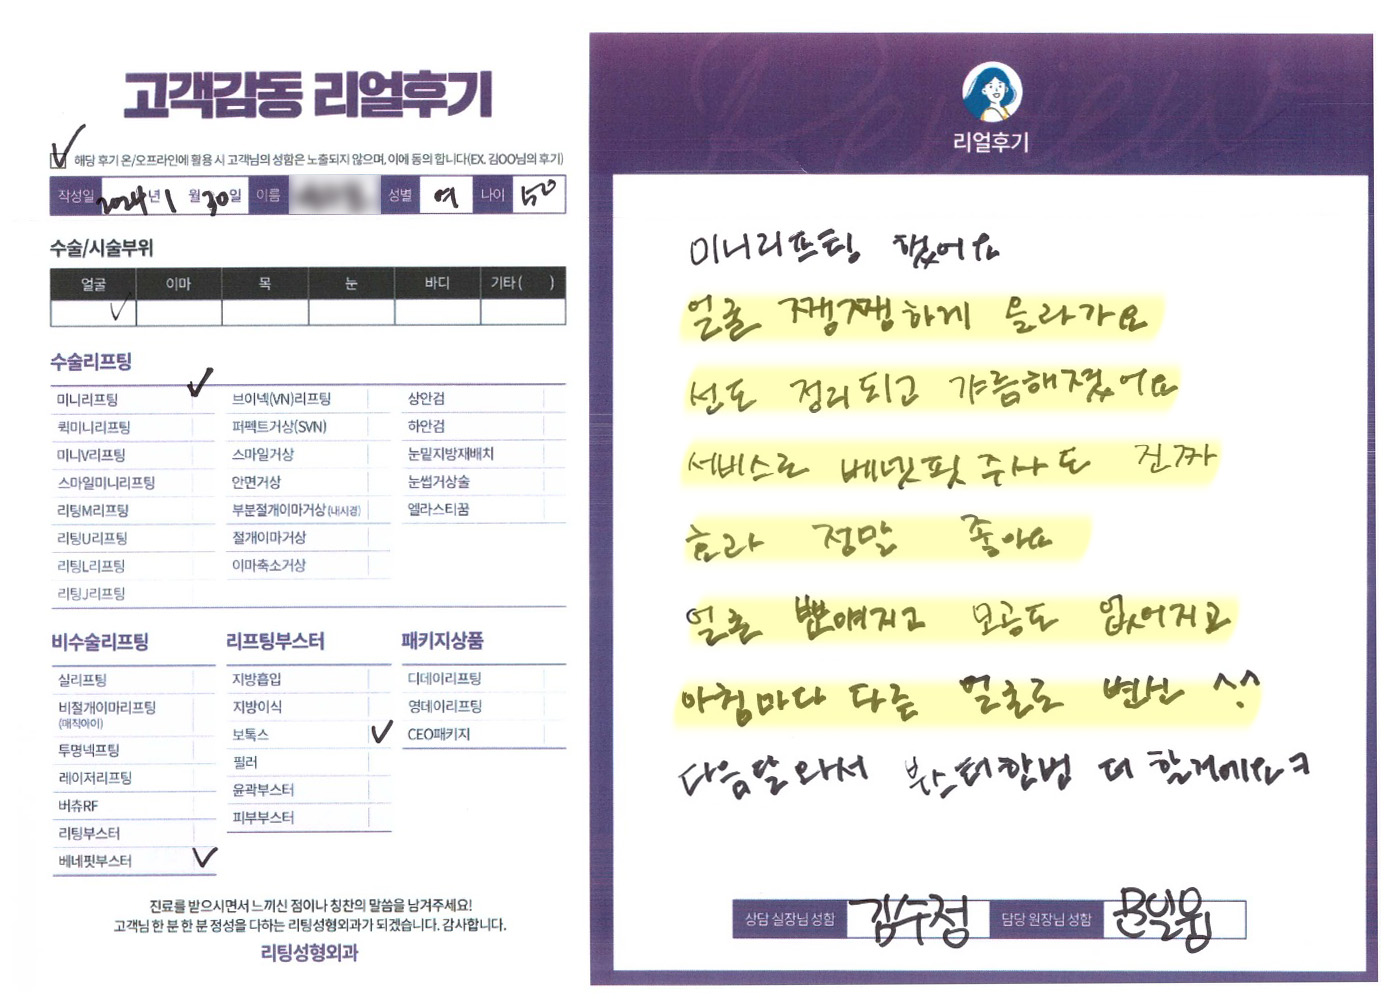 고객감동 리얼후기
해당 후기 온/오프라인에 활용 시 고객님의 성함은 노출되지 않으며, 이에 동의 합니다(EX. 김OO님의 후기)
작성일 2024년 1월 30일 이름 성별 여 나이 50
수술/시술부위
얼굴 이마 목 눈 바디 기타 ( )
수술리프팅
미니리프팅 브이넥(VN)리프팅 상안검
퀵미니리프팅 퍼펙트거상(SVN) 하안검
미니V리프팅 스마일거상 눈밑지방재배치
스마일미니리프팅 안면거상 눈썹거상술
리팅M리프팅 부분절개이마거상(내시경) 엘라스티꿈
리팅U리프팅 절개이마거상
리팅L리프팅 이마축소거상
리팅J리프팅
비수술리프팅 리프팅부스터 패키지상품
실리프팅 지방흡입 디데이리프팅
비절개이마리프팅 지방이식 영데이리프팅
(매직아이)
투명넥프팅 보톡스 CEO패키지
레이저리프팅 필러
버츄RF 윤곽부스터
리팅부스터 피부부스터
베네핏부스터
진료를 받으시면서 느끼신 점이나 칭찬의 말씀을 남겨주세요!
고객님 한 분 한 분 정성을 다하는 리팅성형외과가 되겠습니다. 감사합니다.
리팅성형외과
Review
리얼후기
미니리프팅 했어요
얼굴 쨍쨍하게 올라가요
선도 정리되고 갸름해졌어요
서비스로 베넷핏주사도 진짜
효과 정말 좋아요
얼굴 뽀얘지고 모공도 없어지고
아침마다 다른 얼굴로 변신 ^^
다음달 와서 부스터한번 더 할게예요ㅋ
상담 실장님 성함 김수정 담당 원장님 성함 문일웅